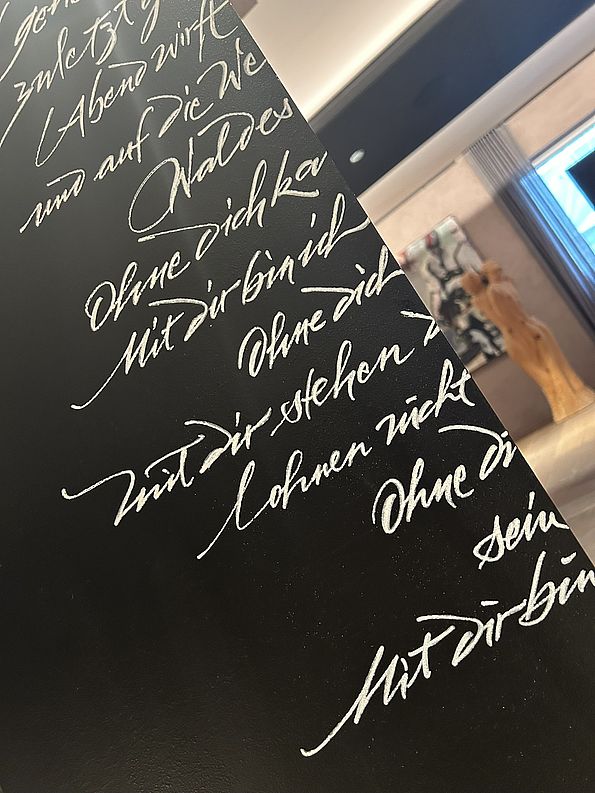 zuletzt
Abend wirft
und auf die We
Waldes
Ohne dich ka
Mit dir bin ich
Ohne dich
mit dir stehen d
lohnen nicht
Ohne di
sein
Mit dir bin